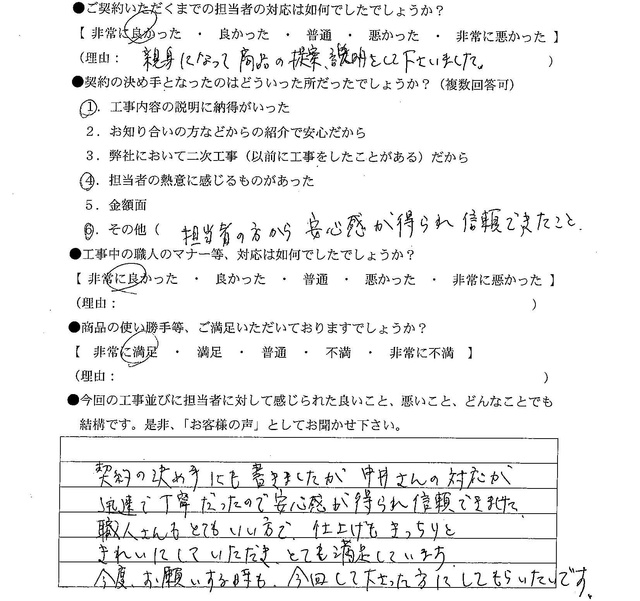 ●ご契約いただくまでの担当者の対応は如何でしたでしょうか？
【 非常に良かった ・ 良かった ・ 普通 ・ 悪かった ・ 非常に悪かった 】
（理由： 親身になって商品の提案、説明をして下さいました。 ）
●契約の決め手となったのはどういった所だったでしょうか？（複数回答可）
１．工事内容の説明に納得がいった
２．お知り合いの方などからの紹介で安心だから
３．弊社において二次工事（以前に工事をしたことがある）だから
４．担当者の熱意に感じるものがあった
５．金額面
６．その他（ 担当者の方から安心感が得られ信頼できたこと.
●工事中の職人のマナー等、対応は如何でしたでしょうか？
【 非常に良かった ・ 良かった ・ 普通 ・ 悪かった ・ 非常に悪かった 】
（理由： ）
●商品の使い勝手等、ご満足いただいておりますでしょうか？
【 非常に満足 ・ 満足 ・ 普通 ・ 不満 ・ 非常に不満 】
（理由： ）
●今回の工事並びに担当者に対して感じられた良いこと、悪いこと、どんなことでも
結構です。是非、「お客様の声」としてお聞かせ下さい。
契約の決め手にも書きましたが 中井さんの対応が
迅速で丁寧だったので安心感が得られ信頼できました.
職人さんもとてもいい方で、仕上げもきっちりと
きれいにしていただき、とても満足しています.
今度、お願いする時も、今回して下さった方にしてもらいたいです。